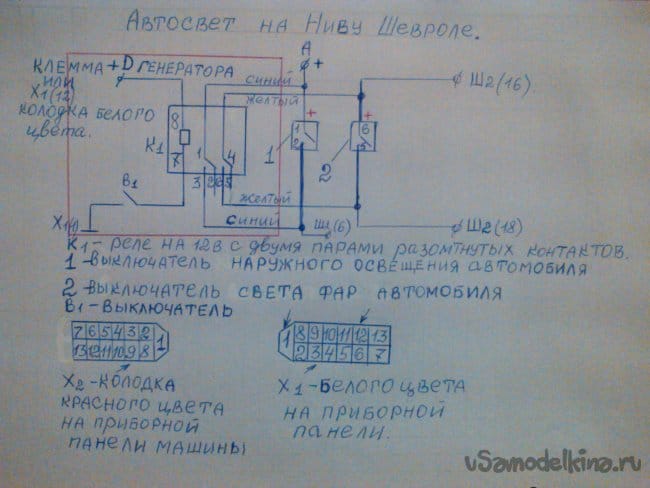 Автосвет на Ниву Шевроле.
А
+
Клемма +D генератора
или
X1(12)
колодка белого
цвета.
синий
жёлтый
Ш2(16)
К1
8
7
1
4
3 2 6 5
+
1
2
1
+
6
5
2
В1
X1(1)
жёлтый
синий
Ш1(6)
Ш2(18)
К1 - реле на 12в с двумя парами разомтнутых контактов.
1 - выключатель наружного освещения автомобиля
2 - выключатель света фар автомобиля
В1 - выключатель
7 6 5 4 3 2
13 12 11 10 9 8
1
1
8 9 10 11 12 13
2 3 4 5 6 7
X2 - колодка
красного цвета
на приборной
панели машины
X1 - белого цвета
на приборной
панели.
vSamodelkina.ru